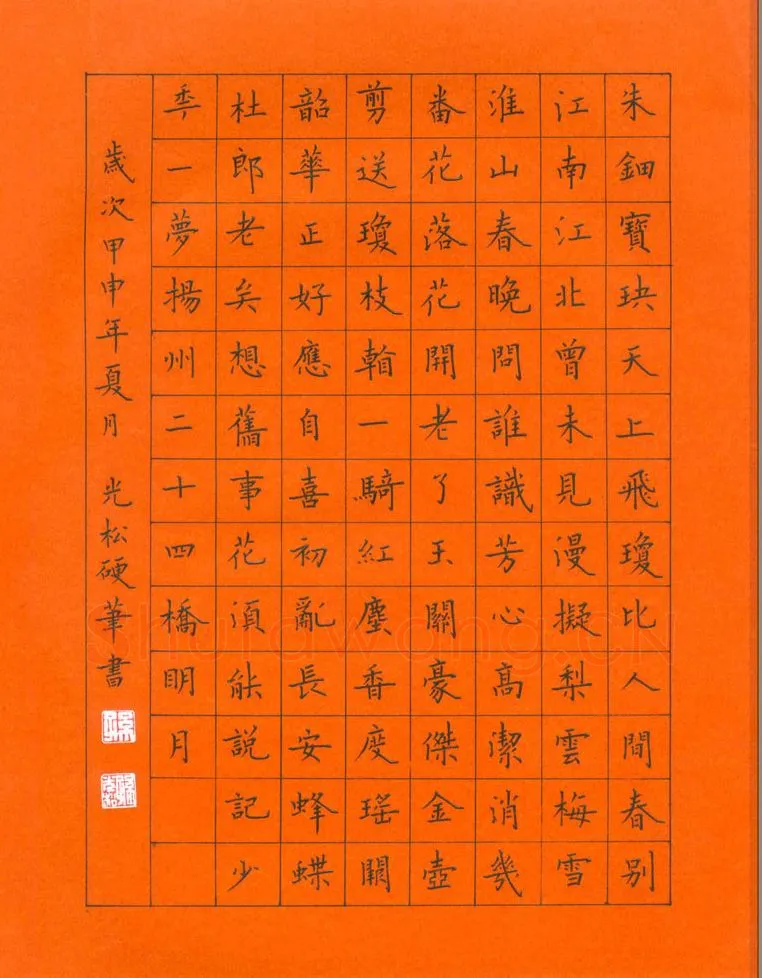 朱鈿寶玦天上飛瓊比人間春別
江南江北曾未見漫擬梨雲梅雪
淮山春晚問誰識芳心高潔消幾
番花落花開老了玉關豪傑金壺
剪送瓊枝看一騎紅塵香度瑤闕
韶華正好應自喜初亂長安蜂蝶
杜郎老矣想舊事花須能說記少
秊一夢揚州二十四橋眀月
歲次甲申年夏月 光松硬筆書
Shufawang.CN